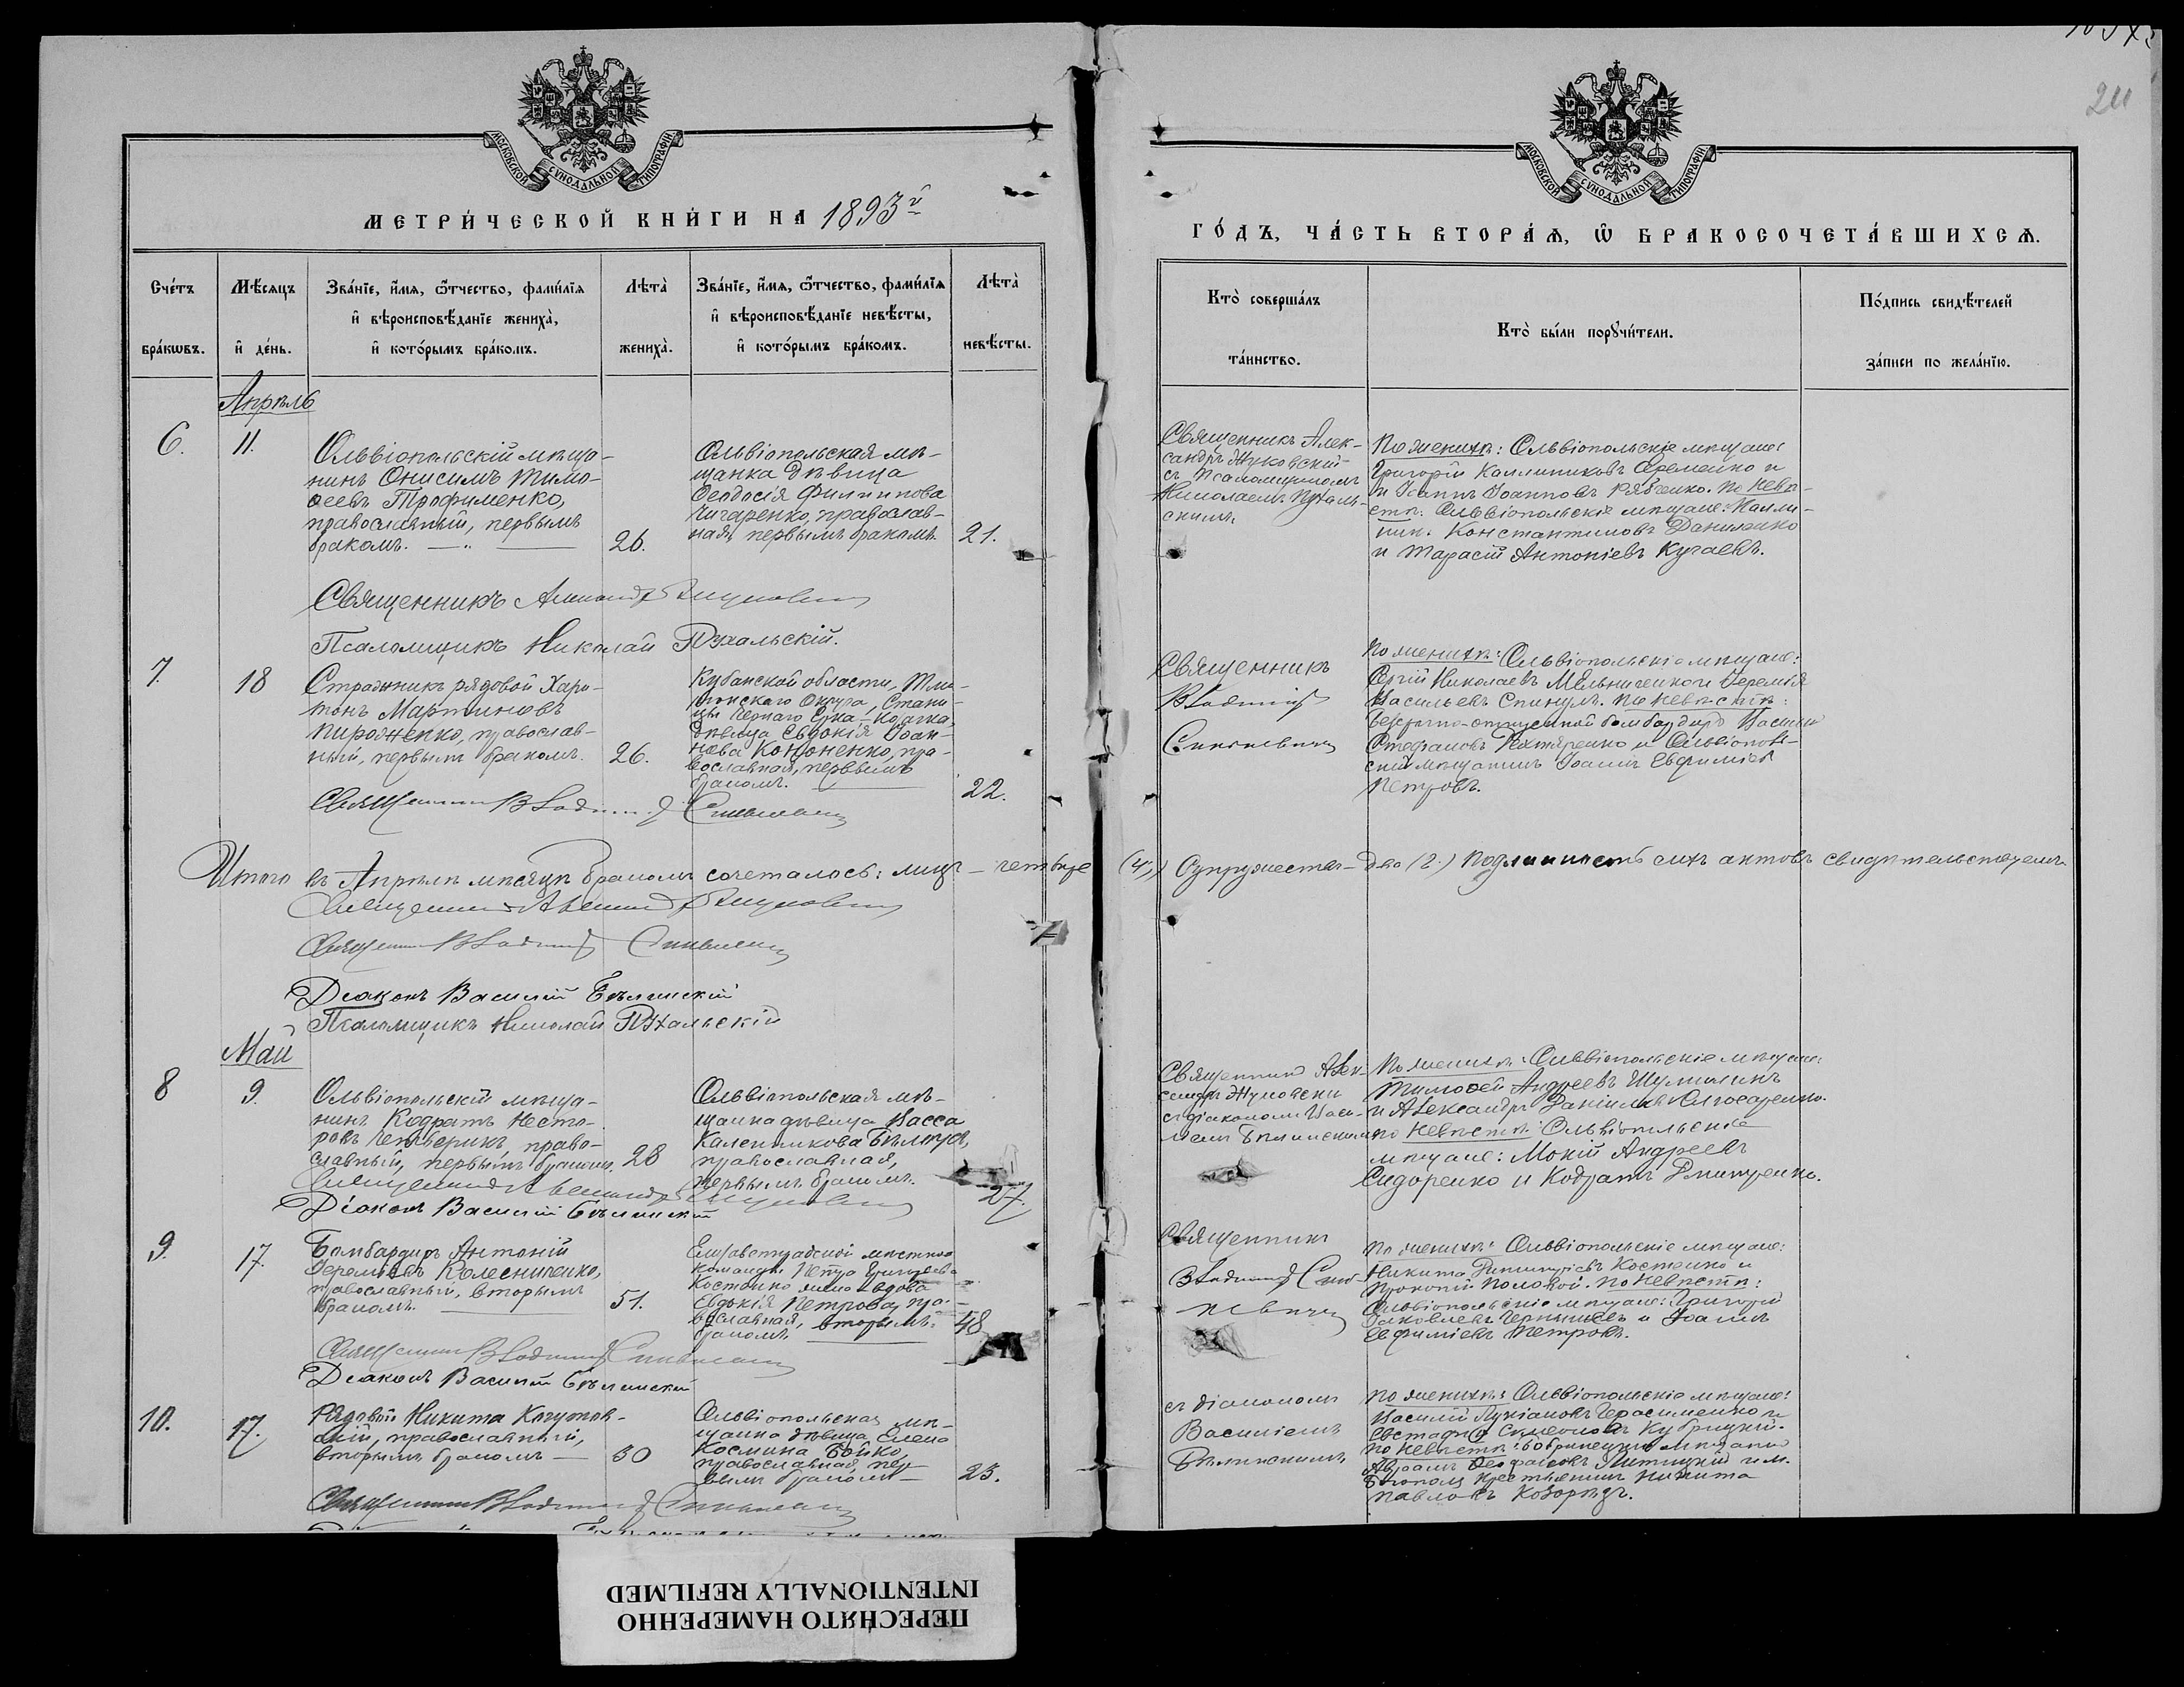 211
МОСКОВСКОЙ СѴНОДАЛЬНОЙ ТИПОГРАФІИ
МОСКОВСКОЙ СѴНОДАЛЬНОЙ ТИПОГРАФІИ
МЕТРИ́ЧЕСКОЙ КНИ́ГИ НА 1893й
ГО́ДЪ, ЧА́СТЬ ВТОРА́Ѧ, Ѽ БРАКОСОЧЕТА́ВШИХСѦ.
Сче́тъ
бра́кѡвъ.
Мѣ́сѧцъ
и҆ де́нь.
Зва́нїе, и҆́мѧ, ѻ҆́тчество, фами́лїѧ
и҆ вѣроисповѣ́данїе жениха̀,
и҆ кото́рымъ бра́комъ.
Лѣта̀
жениха̀.
Зва́нїе, и҆́мѧ, ѻ҆́тчество, фами́лїѧ
и҆ вѣроисповѣ́данїе невѣ́сты,
и҆ кото́рымъ бра́комъ.
Лѣта̀
невѣ́сты.
Кто̀ соверша́лъ
та́инство.
Кто̀ бы́ли порꙋчи́тели.
По́дпись свидѣ́телей
за́писи по жела́нїю.
Апрѣль
6.
11.
Ольвіопольскій мѣща-
нинъ Онисимъ Тимо-
ѳеевъ Трофименко,
православный, первымъ
бракомъ.
26.
Ольвіопольская мѣ-
щанка дѣвица
Ѳеодосія Филиппова
Чигаренко, православ-
ная, первымъ бракомъ.
21.
Священникъ Алек-
сандръ Жуковскій
съ Псаломщикомъ
Николаемъ Пухаль-
скимъ.
По женихѣ: Ольвіопольскіе мѣщане:
Григорій Каллиниковъ Яременко и
и Іоаннъ Іоанновъ Рябченко. По невѣ-
стѣ: Ольвіопольскіе мѣщане: Калли-
ник. Константиновъ Даниленко
и Тарасій Антоніевъ Кугаевъ.
Священникъ Александръ Жуковскій
Псаломщикъ Николай Пухальскій.
7.
18
Стражникъ рядовой Хари-
тонъ Мартиновъ
Пироженко, православ-
ный, первымъ бракомъ.
26.
Кубанской области,
Округа, Стани-
цы Чернаго Ерка-козачка,
дѣвица Евдокія Іоан-
нова Кононенко, пра-
вославная, первымъ
бракомъ.
22.
Священникъ
Владиміръ
По женихѣ: Ольвіопольскіе мѣщане:
Сергій Николаевъ Мельниченко и Іеремія
Васильевъ Спинулъ. По невѣстѣ:
безсрочно-отпускной бомбардиръ Василій
Стефановъ Дехтяренко и Ольвіополь-
скій мѣщанинъ Іоаннъ Евфиміевъ
Петровъ.
Священникъ Владиміръ
Итого въ Апрѣлѣ мѣсяцѣ бракомъ сочеталось: лицъ - четыре (4,) Супружествъ - два (2.) Подлинность сихъ актовъ свидѣтельствуемъ.
Священникъ Александръ Жуковскій
Священникъ Владиміръ
Діаконъ Василій Бѣлинскій
Псаломщикъ Николай Пухальскій
Май
8
9.
Ольвіопольскій мѣща-
нинъ Кодратъ Несто-
ровъ Четверикъ, право-
славный, первымъ бракомъ.
28
Ольвіопольская мѣ-
щанка дѣвица Васса
Калениκова
православная,
первымъ бракомъ.
27.
Священникъ Алек-
сандръ Жуковскій
съ діакономъ Васи-
ліемъ Бѣлинскимъ
По женихѣ: Ольвіопольскіе мѣщане:
Тимоѳей Андреевъ Шумилинъ
и Александръ Даніиловъ Слюсаренко.
по невѣстѣ: Ольвіопольскіе
мѣщане: Мокій Андреевъ
Сидоренко и Кодратъ Дмитренко.
Священникъ Александръ Жуковскій
Діаконъ Василій Бѣлинскій
9.
17.
Бомбардиръ Антоній
Іереміевъ Колесниченко,
православный, вторымъ
бракомъ.
51.
Елисаветградской мѣстной
команды Петра Григорьева
Костенко жена вдова
Евдокія Петрова, пра-
вославная, вторымъ
бракомъ.
48
Священникъ
Владиміръ
По женихѣ: Ольвіопольскіе мѣщане:
Никита Димитріевъ Костенко и
Прокопій Половой. По невѣстѣ:
Ольвіопольскіе мѣщане: Григорій
Яковлевъ Чернышевъ и Іоаннъ
Евфиміевъ Петровъ.
Священникъ Владиміръ
Діаконъ Василій Бѣлинскій
10.
17.
Рядовой Никита Когутов-
скій, православный,
вторымъ бракомъ
30
Ольвіопольская мѣ-
щанка дѣвица Елена
Космина Бойко,
православная, пер-
вымъ бракомъ
23.
съ діакономъ
Василіемъ
Бѣлинскимъ
По женихѣ: Ольвіопольскіе мѣщане:
Василій Лукіановъ Герасименко и
Евстафій Симеоновъ Кубрицкій.
По невѣстѣ: Бобринецкій мѣщанинъ
Авраамъ Ѳеофановъ Липицкій и м.
Богополя крестьянинъ Никита
Павловъ Козорѣзъ.
Священникъ Владиміръ
ПЕРЕСНЯТО НАМЕРЕННО
INTENTIONALLY REFILMED